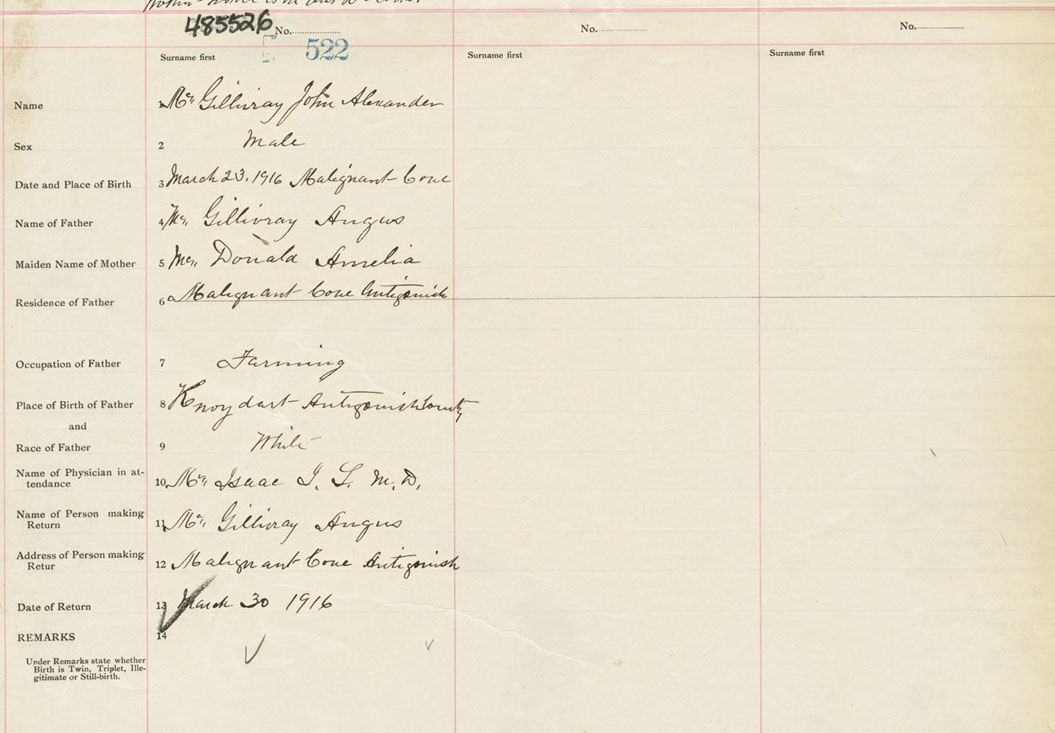 485526 No.
522
No.
No.
Surname first
Surname first
Surname first
Name 1 Mc Gillivray John Alexander
Sex 2 Male
Date and Place of Birth 3 March 23, 1916 Malignant Cove
Name of Father 4 Mc Gillivray Angus
Maiden Name of Mother 5 Mc Donald Amelia
Residence of Father 6 Malignant Cove Antigonish
Occupation of Father 7 Farming
Place of Birth of Father 8 Knoydart Antigonish County
and
Race of Father 9 White
Name of Physician in at-
tendance 10 Mc Isaac J. L. M.D.
Name of Person making
Return 11 Mc Gillivray Angus
Address of Person making
Retur 12 Malignant Cove Antigonish
Date of Return 13 March 30 1916
REMARKS 14
Under Remarks state whether
Birth is Twin, Triplet, Ille-
gitimate or Still-birth.